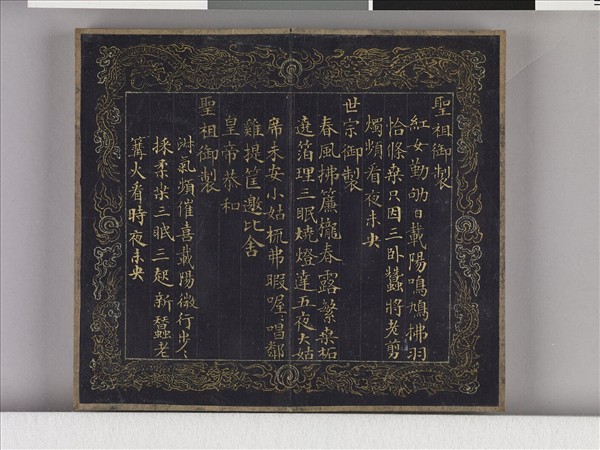 聖祖御製
紅女勤劬日載陽鳴鳩拂羽
恰條桒只因三卧蠶將老剪
燭頻看夜未央
世宗御製
春風拂簾櫳春露繁桒柘
遶箔理三眠燒燈達五夜大姑
席未安小姑梳弗暇喔〻唱鄰
雞提筐邀比舍
皇帝恭和
聖祖御製
淑氣頻催喜載陽微行步〻
採柔桒三眠三起新蠶老
篝火看時夜未央